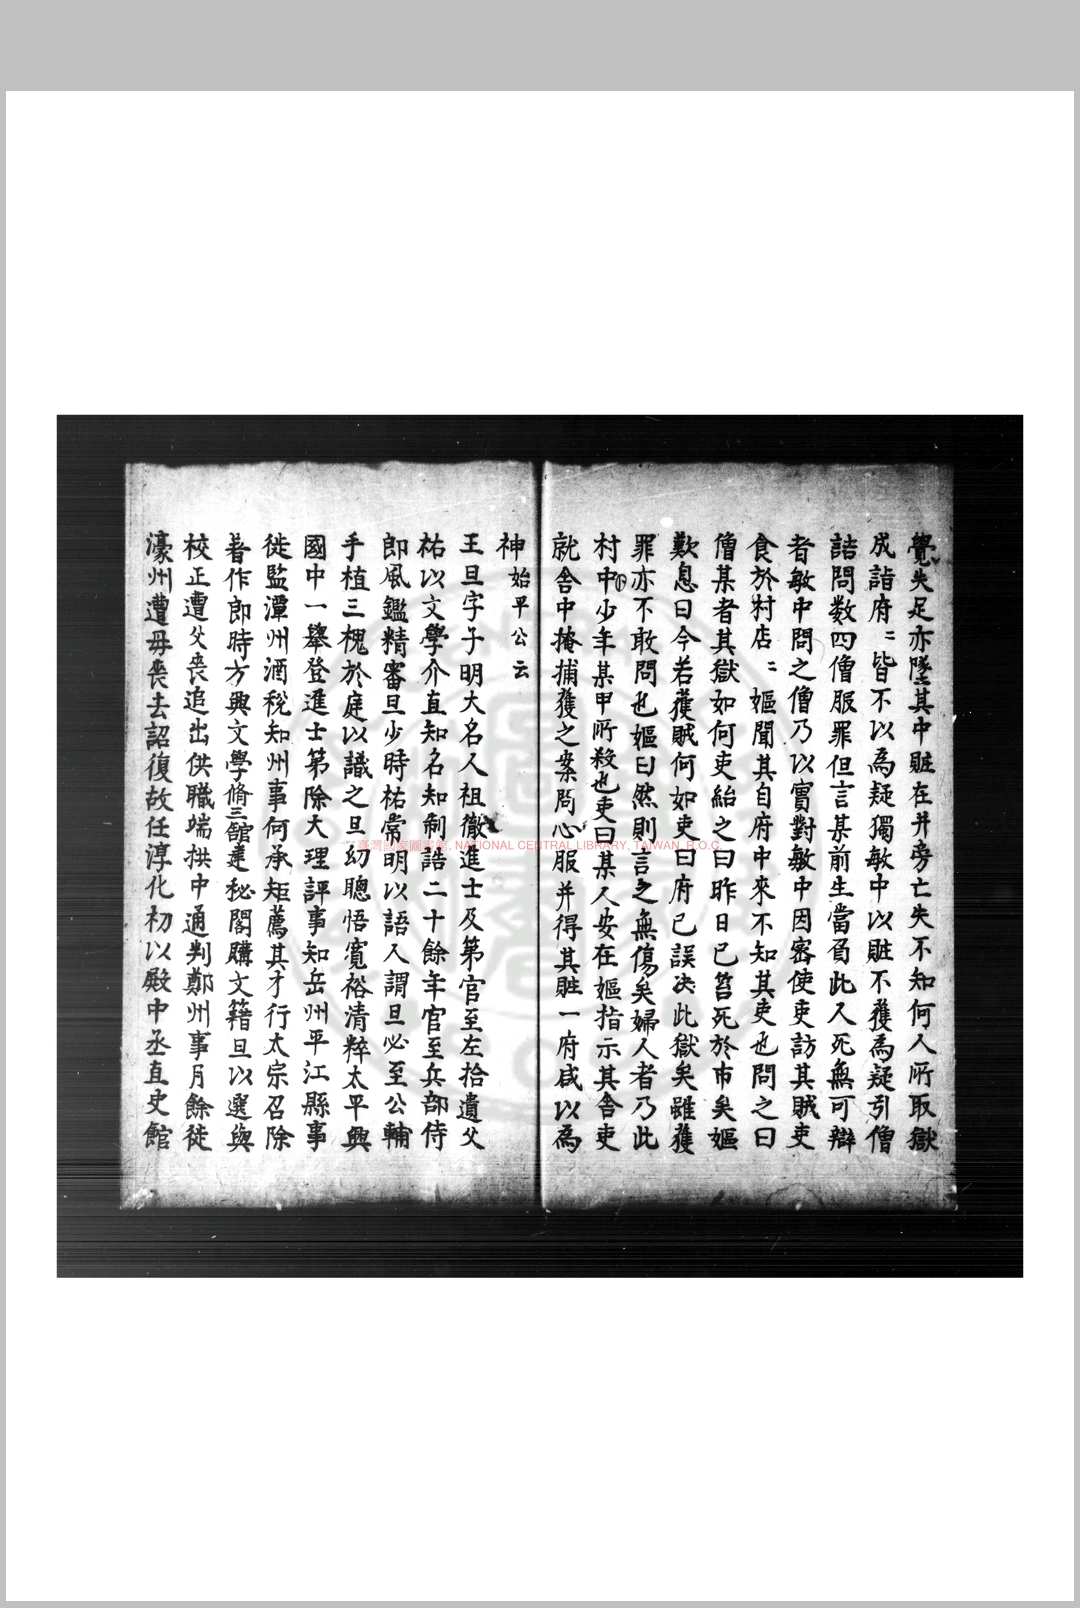 覺失足亦墜其中賍在井旁亡失不知何人所取獄
成詣府〻皆不以為疑獨敏中以賍不獲為疑引僧
詰問数四僧服罪但言某前生當負此人死無可辯
者敏中問之僧乃以實對敏中因密使吏訪其賊吏
食於村店〻嫗聞其自府中來不知其吏也問之曰
僧某者其獄如何吏紿之曰昨日已笞死於市矣嫗
歎息曰今若獲賊何如吏曰府已誤决此獄矣雖獲
罪亦不敢問也嫗曰然則言之無傷矣婦人者乃此
村中少年某甲所殺也吏曰某人安在嫗指示其舍吏
就舍中掩捕獲之案問心服并得其賍一府咸以為
神始平公云
王旦字子明大名人祖徹進士及第官至左拾遺父
祐以文學介直知名知制誥二十餘年官至兵部侍
郎風鑑精審旦少時祐常明以語人謂旦必至公輔
手植三槐於庭以識之旦幼聰悟寬裕清粹太平興
國中一舉登進士第除大理評事知岳州平江縣事
徙監潭州酒稅知州事何承矩薦其才行太宗召除
著作郎時方興文學脩三館建秘閣購文籍旦以選與
校正遭父喪追出供職端拱中通判鄭州事月餘徙
濠州遭毋喪去詔復故任淳化初以殿中丞直史館
臺灣國家圖書館, NATIONAL CENTRAL LIBRARY, TAIWAN, R.O.C.